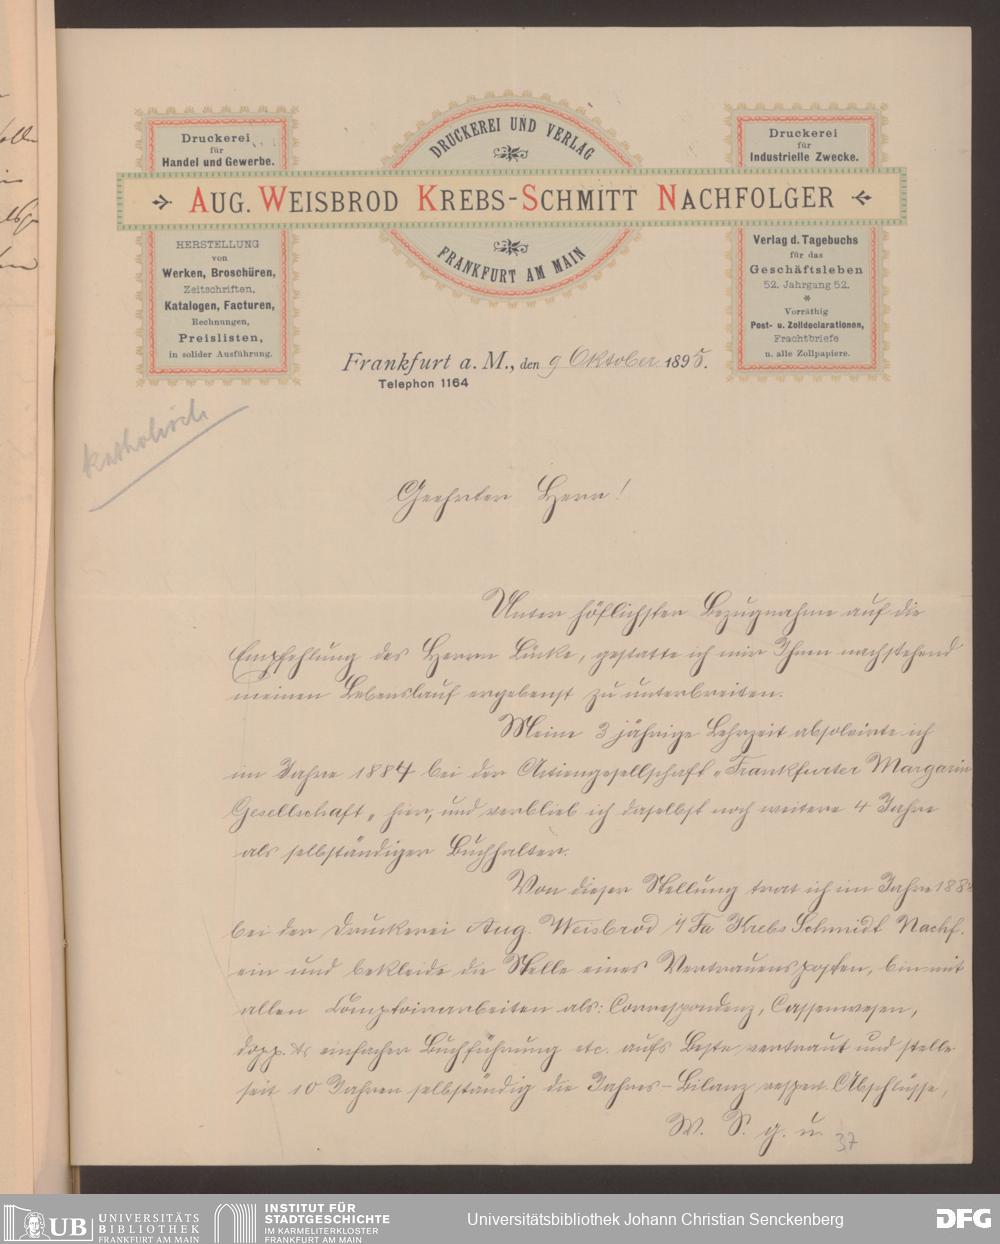 Druckerei
für
Handel und Gewerbe.
DRUCKEREI UND VERLAG
Druckerei
für
Industrielle Zwecke.
AUG. WEISBROD KREBS-SCHMITT NACHFOLGER
FRANKFURT AM MAIN
HERSTELLUNG
von
Werken, Broschüren,
Zeitschriften,
Katalogen, Facturen,
Rechnungen,
Preislisten,
in solider Ausführung.
Verlag d. Tagebuchs
für das
Geschäftsleben
52. Jahrgang 52.
*
Vorräthig
Post- u. Zolldeclarationen,
Frachtbriefe
u. alle Zollpapiere.
Frankfurt a. M., den 9 Oktober 1895.
Telephon 1164
katholisch
Geehrter Herr!
Unter höflichster Bezugnahme auf die
Empfehlung des Herrn Lücke, gestatte ich mir Ihnen nachstehend
meinen Lebenslauf ergebenst zu unterbreiten.
Meine 3 jährige Lehrzeit absolvirte ich
im Jahre 1884 bei der Actiengesellschaft "Frankfurter Margarin
Gesellschaft" hier, und verblieb ich daselbst noch weitere 4 Jahre
als selbständiger Buchhalter.
Von dieser Stellung trat ich im Jahre 1888
bei der Druckerei Aug. Weisbrod i/ Fa Krebs Schmidt Nachf.
ein und bekleide die Stelle eines Vertrauenspostens, bin mit
allen Comptoirarbeiten als: Correspondenz, Cassenwesen,
dopp. & einfacher Buchführung etc. aufs Beste vertraut und stelle
seit 10 Jahren selbständig die Jahres-Bilanz respect. Abschlüsse,
W. S. g. u.
37
UB UNIVERSITÄTS
BIBLIOTHEK
FRANKFURT AM MAIN
INSTITUT FÜR
STADTGESCHICHTE
IM KARMELITERKLOSTER
FRANKFURT AM MAIN
Universitätsbibliothek Johann Christian Senckenberg
DFG